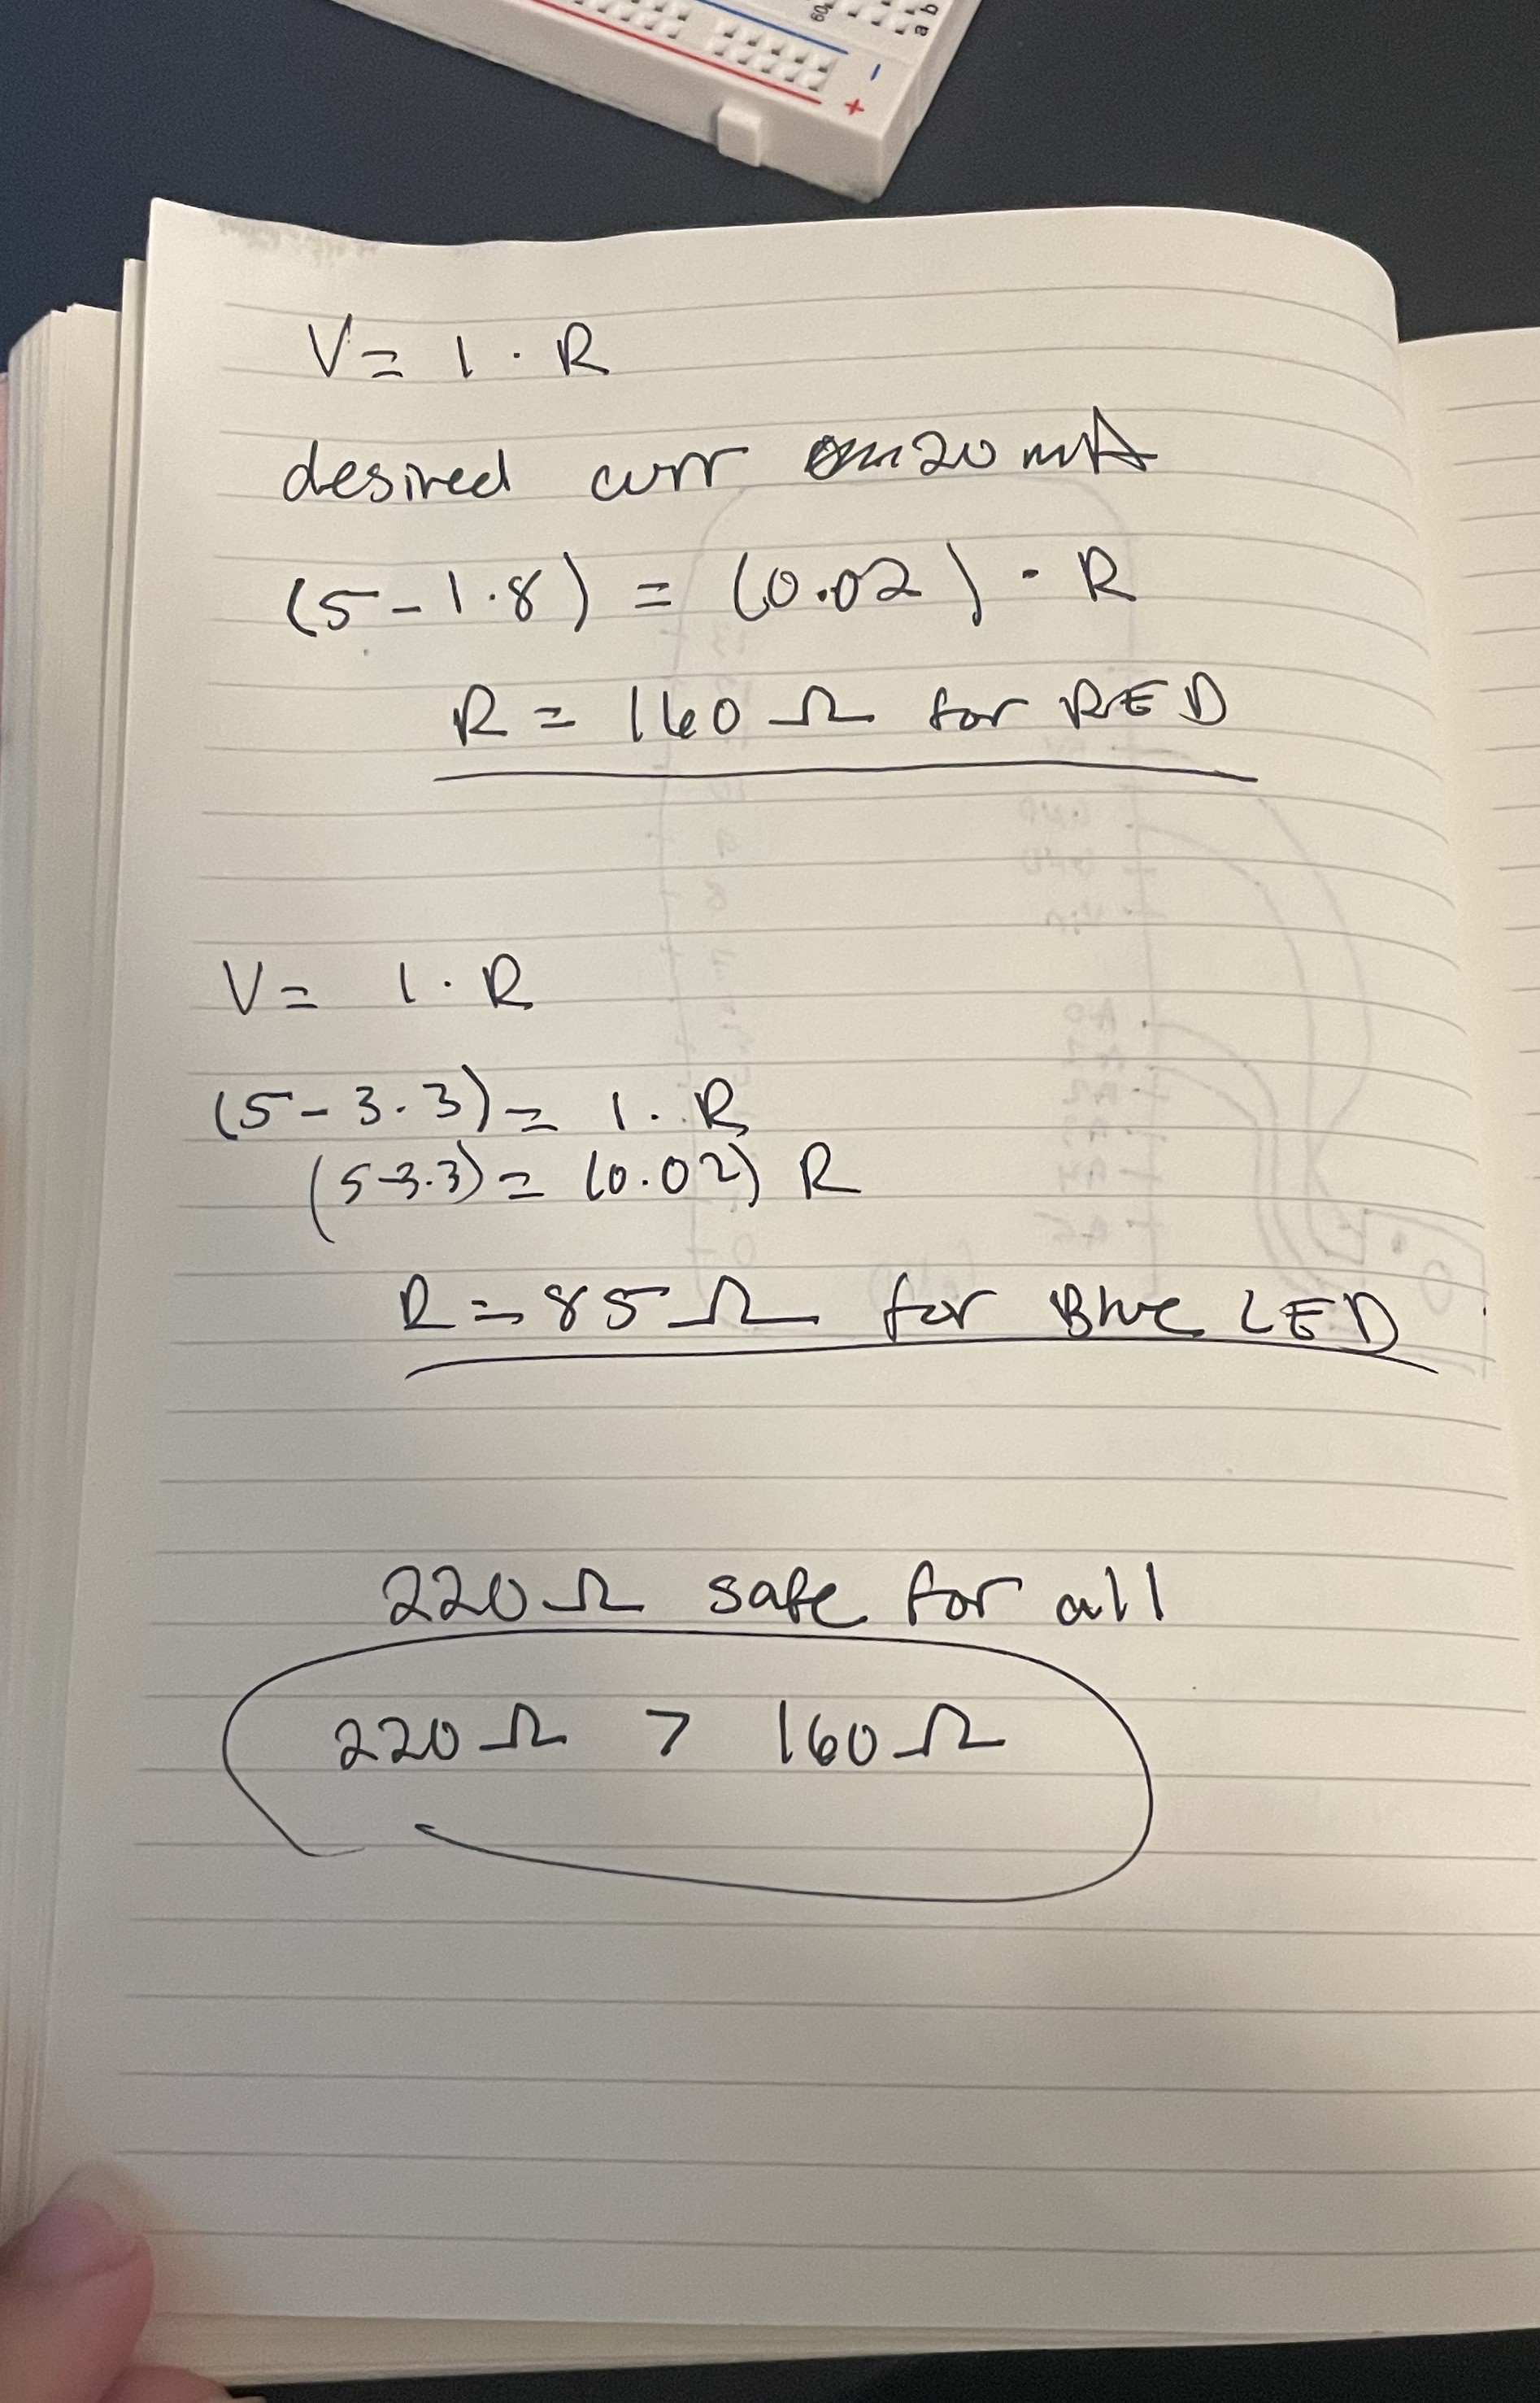 60
a b
- +
V = I · R
desired curr 20 mA
(5 - 1.8) = (0.02) · R
R = 160 Ω for RED
V = I · R
(5 - 3.3) = I · R
(5-3.3) = (0.02) R
R = 85 Ω for Blue LED
220 Ω safe for all
220 Ω > 160 Ω